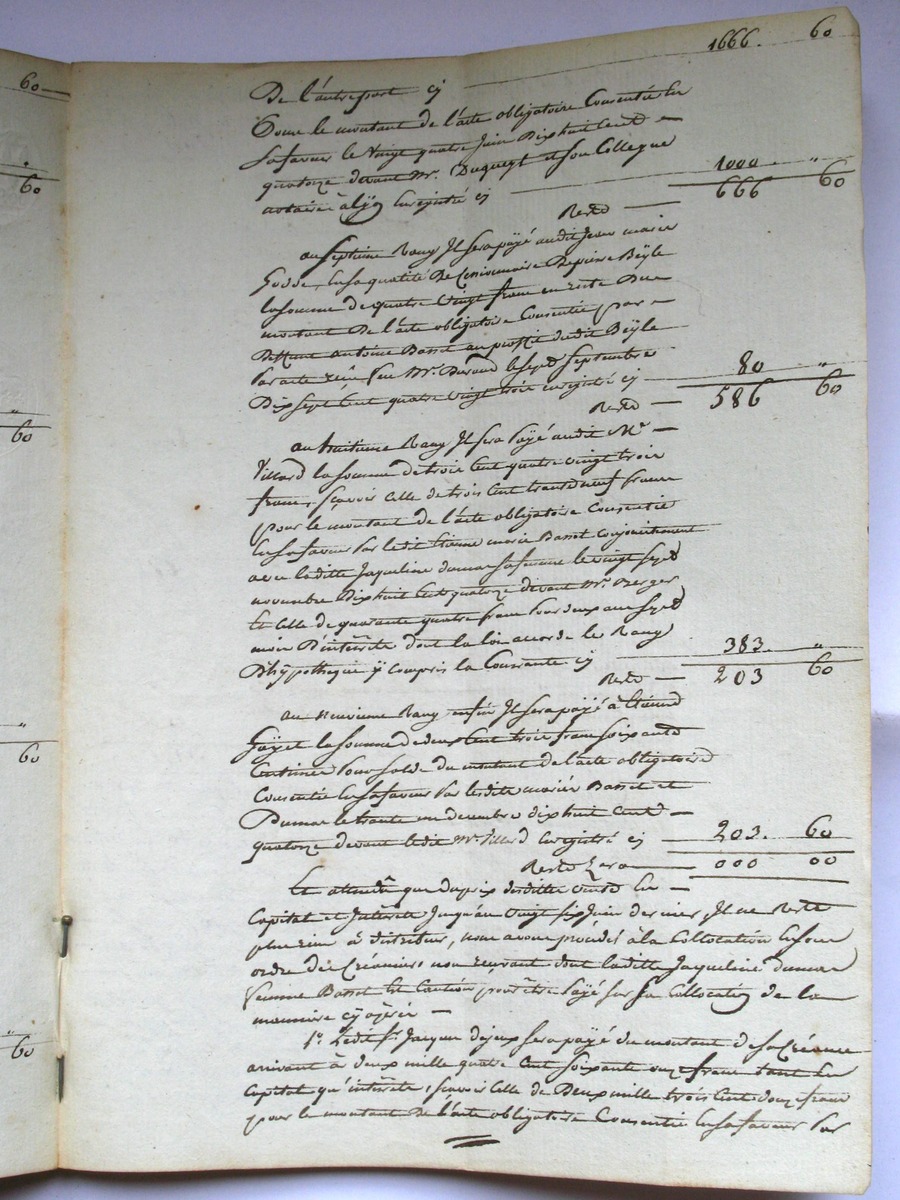 De l'autre part cy 1666. 60
Pour le montant de l'acte obligatoire Consentie En
Sa faveur le Vingt quatre Juin Dix huit Cent
quatorze devant Mr. Duqueyt et son Collegue
notaire à Lyon Enregistré cy 1000. "
Reste 666 60
au Septieme Rang Il sera payé audit Jean marie
En sa qualité De Cessionnaire De pierre Bëyle
la somme de quatre Vingt franc en reste Du
montant De l'acte obligatoire Consentie par
Deffunt antoine Basset au proffit dudit Bëyle
Par acte reçu Feu Mr. Durand le sept Septembre
Dix sept Cent quatre Vingt trois enregistré cy 80 "
Reste 586 60
au huitieme Rang Il sera payé audit Me
Villard la somme de trois Cent quatre vingt trois
francs, sçavoir celle de trois Cent trente neuf francs
pour le montant de l'acte obligatoire Consentie
En sa faveur Par ledit Etienne marie Basset Conjointement
avec laditte Jaqueline dumas sa femme le vingt sept
novembre Dix huit Cent quatorze devant Mr. Berger
Et Celle de quarante quatre franc Pour deux ans sept
mois D'intérêts dont la loi accorde le Rang
D'hÿpotheque ÿ compris la Courante cy 383. "
Reste 203 60
au neuvieme Rang enfin Il sera payé à Etienne
Fayet la somme de deux Cent trois franc soixante
Centimes Pour solde du montant de l'acte obligatoire
Consentie En sa faveur Par lesdits mariés Basset et
Dumas le trente un decembre dix huit Cent
quatorze devant ledit Mr. Villard Enregistré cy 203. 60
Reste Zero 000 00
Et attendu que du prix desditte vente En
Capital et Intérêts Jusqu'au Vingt six Juin dernier, Il ne Reste
plus rien à distribuer, nous avons procédé à la Collocation En sous
ordre des Créanciers non venant dont laditte Jaqueline dumas
femme Basset Est Caution, pour être Payé sur sa Collocation de la
maniere cy après
1°. Ledit Sr. Jacques dejeux sera payé du montant de sa Créance
arrivant à deux mille quatre Cent soixante onze francs tant En
Capital qu'intérêts, sçavoir Celle de Deux mille trois Cent douze francs
pour le montant De l'acte obligatoire Consentie En sa faveur Par
60
60
60
60
60